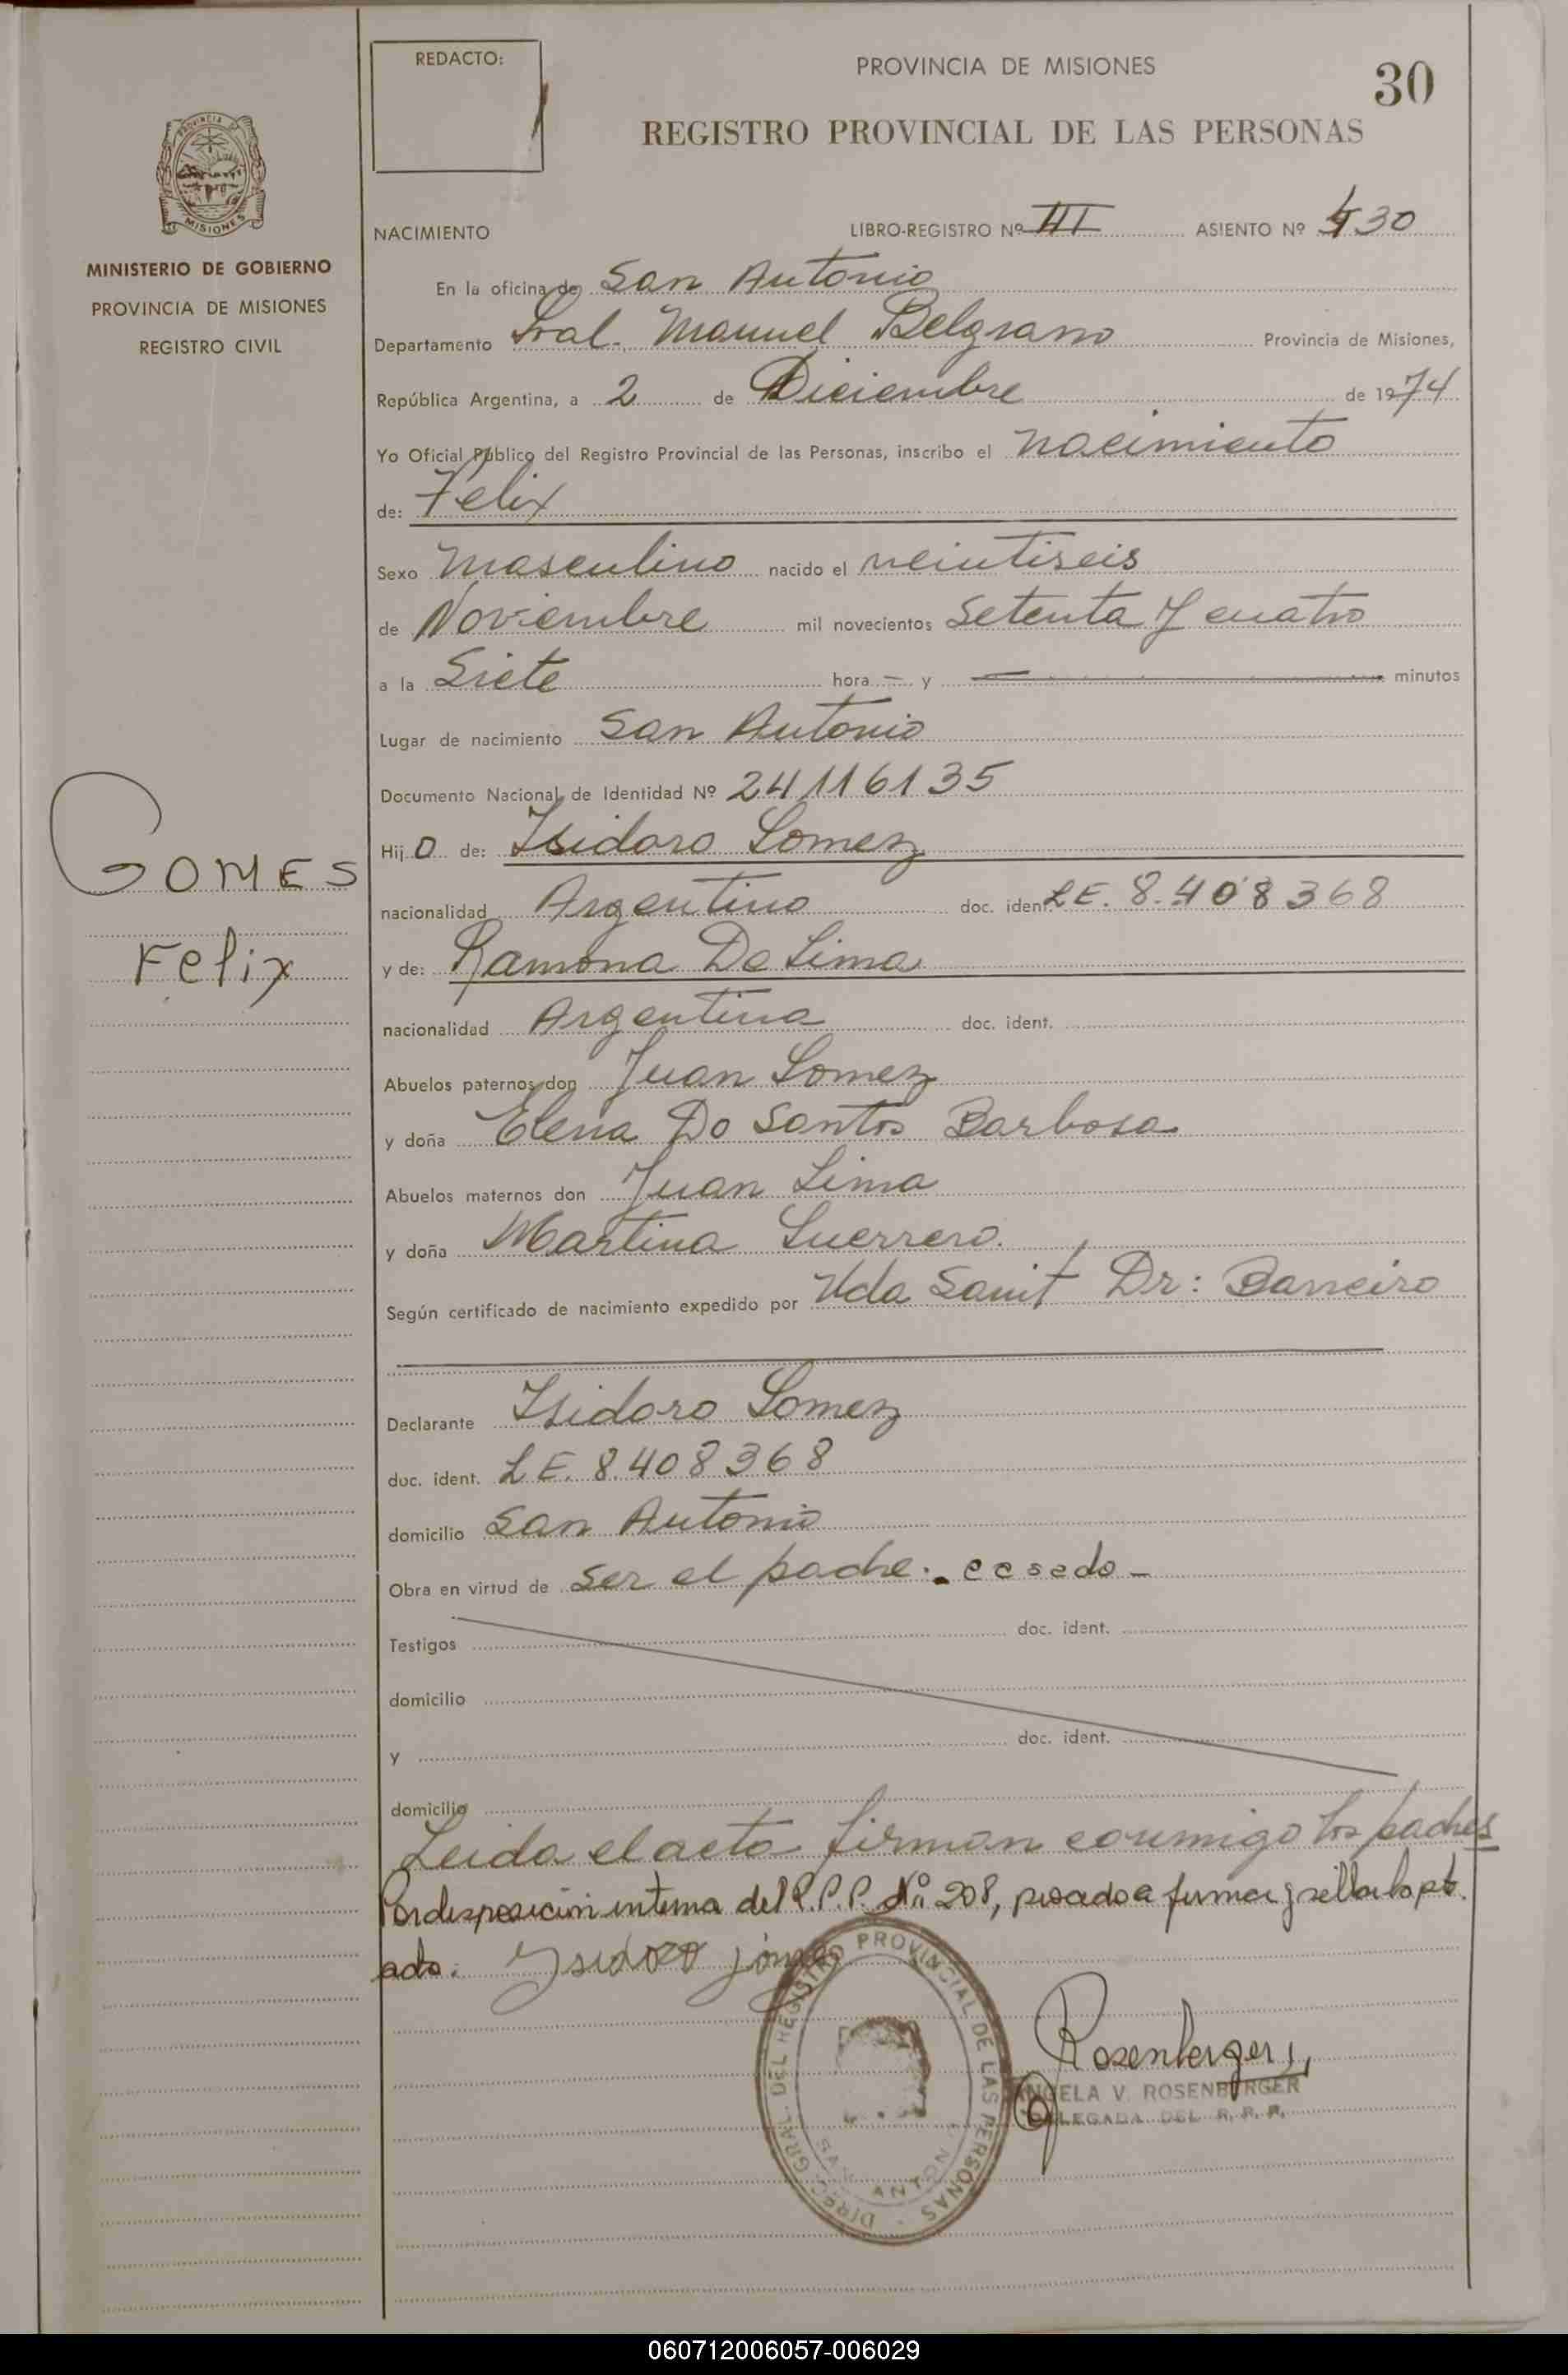 REDACTO:
PROVINCIA DE MISIONES
30
REGISTRO PROVINCIAL DE LAS PERSONAS
PROVINCIA DE
MISIONES
MINISTERIO DE GOBIERNO
PROVINCIA DE MISIONES
REGISTRO CIVIL
NACIMIENTO LIBRO-REGISTRO Nº III ASIENTO Nº 430
En la oficina de San Antonio
Departamento Gral. Manuel Belgrano Provincia de Misiones,
República Argentina, a 2 de Diciembre de 1974
Yo Oficial Público del Registro Provincial de las Personas, inscribo el nacimiento
de: Felix
Sexo masculino nacido el veintiseis
de Noviembre mil novecientos setenta y cuatro
a la Siete hora — y — minutos
Lugar de nacimiento San Antonio
Documento Nacional de Identidad Nº 24116135
Hijo de: Isidoro Gomez
GOMES
nacionalidad Argentino doc. ident. L.E. 8.408368
Felix
y de: Ramona De Lima
nacionalidad Argentina doc. ident.
Abuelos paternos don Juan Gomez
y doña Elena Do Santos Barbosa
Abuelos maternos don Juan Lima
y doña Martina Guerrero.
Según certificado de nacimiento expedido por Uda Sanit Dr: Barreiro
Declarante Isidoro Gomez
doc. ident. L E. 8.408368
domicilio San Antonio
Obra en virtud de ser el padre. casado —
Testigos doc. ident.
domicilio
y doc. ident.
domicilio
Leida el acta firman conmigo los padres
Por disposición interna del R.P.P. Nº 208, procedo a firmar y sellar la pte.
acta. Isidoro gómez
DIREC. GRAL. DEL REGISTRO PROVINCIAL DE LAS PERSONAS
SAN ANTONIO
Rosenberger
ANGELA V. ROSENBERGER
DELEGADA DEL R. P. P.
060712006057-006029